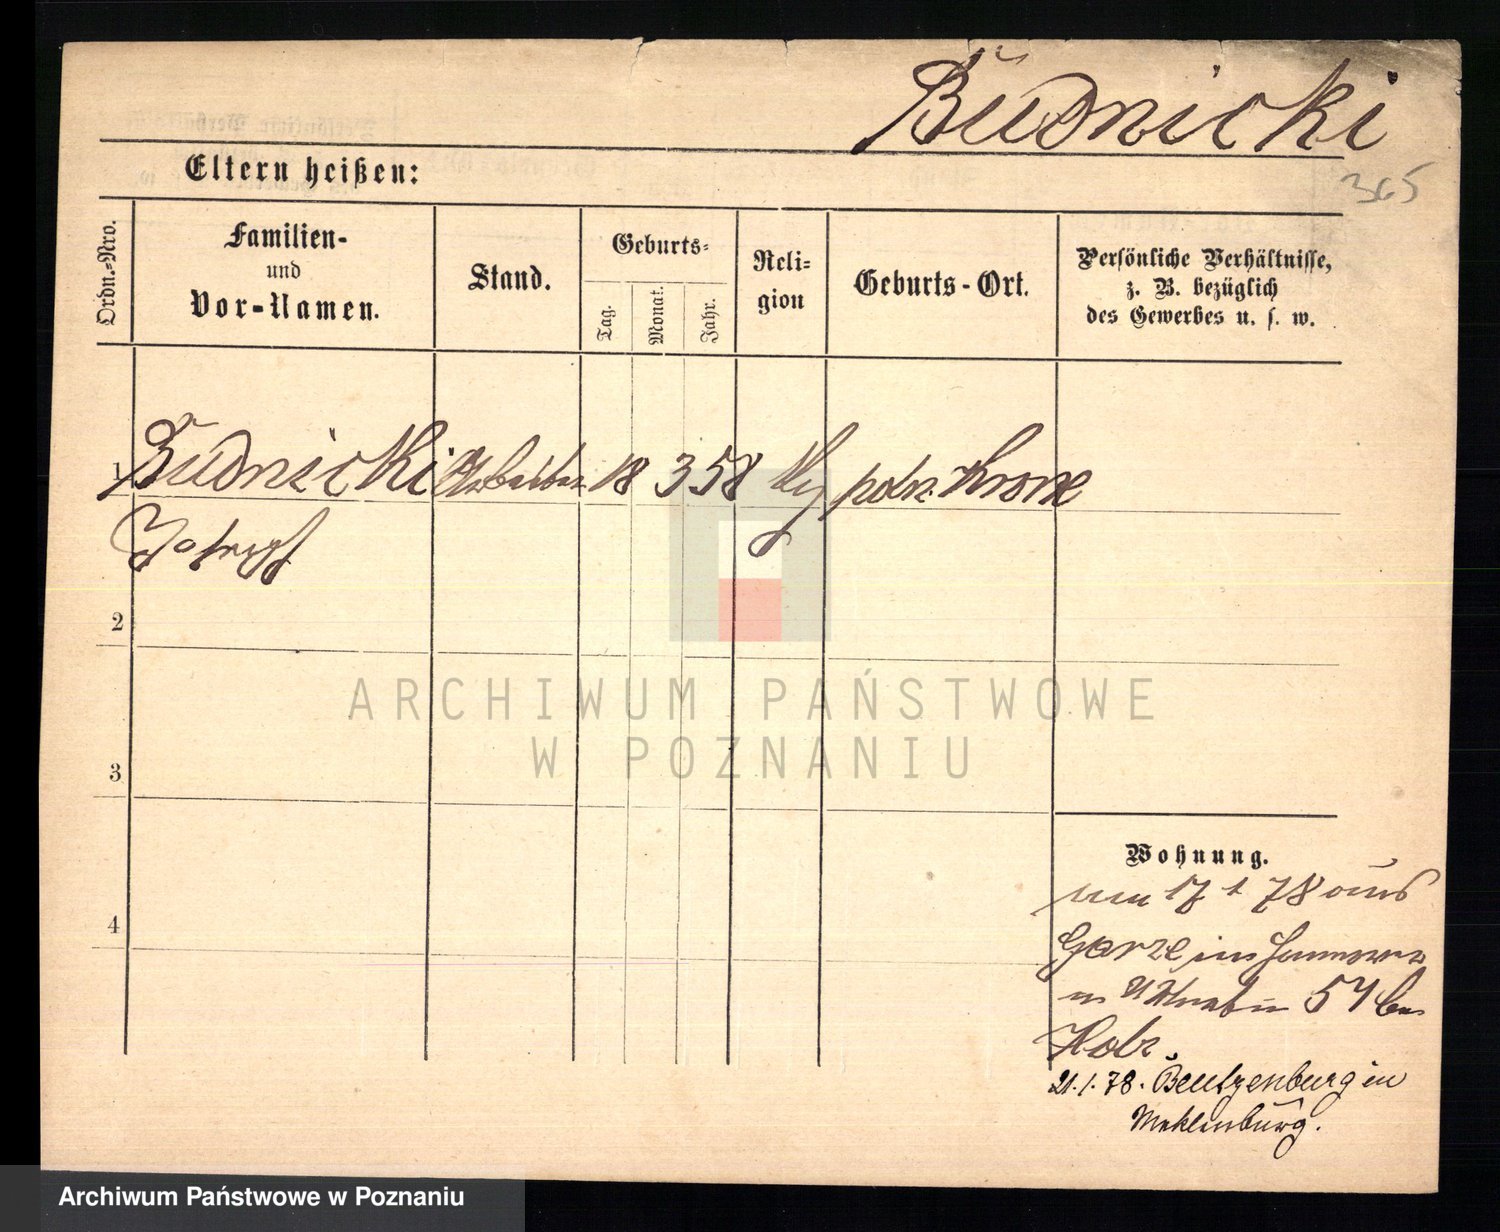 Budnicki
365
Eltern heißen:
Ordn.-Nro.
Familien-
und
Vor-Namen.
Stand.
Geburts-
Tag.
Monat.
Jahr.
Reli-
gion
Geburts-Ort.
Persönliche Verhältnisse,
z. B. bezüglich
des Gewerbes u. s. w.
1 Budnicki Arbeiter 18 3 58 poln. Krone
2
3
4
Wohnung.
17 1 78 aus
Garze in Hannover
57 bei
21.1.78. in
Meklenburg.
ARCHIWUM PAŃSTWOWE
W POZNANIU
Archiwum Państwowe w Poznaniu